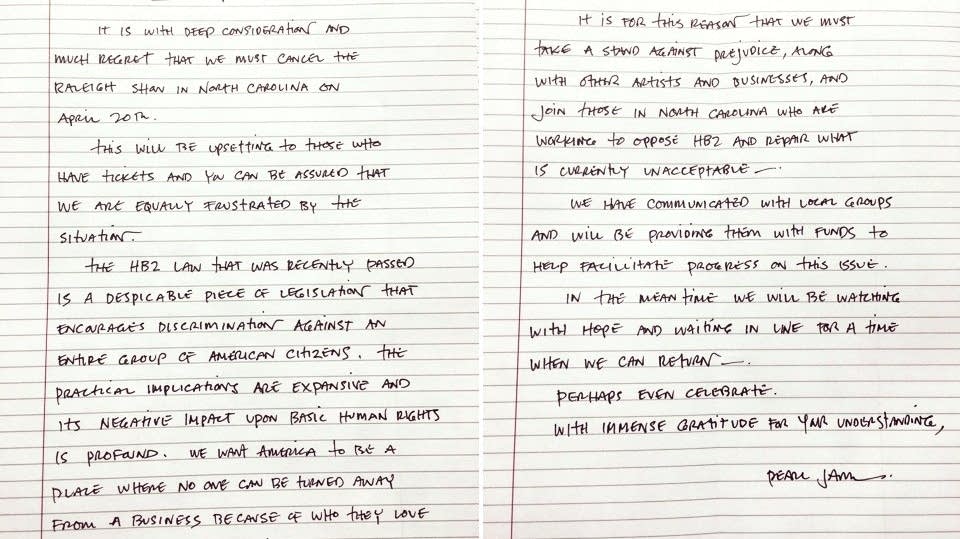 IT IS WITH DEEP CONSIDERATION AND
MUCH REGRET THAT WE MUST CANCEL THE
RALEIGH SHOW IN NORTH CAROLINA ON
APRIL 20TH.
THIS WILL BE UPSETTING TO THOSE WHO
HAVE TICKETS AND YOU CAN BE ASSURED THAT
WE ARE EQUALLY FRUSTRATED BY THE
SITUATION.
THE HB2 LAW THAT WAS RECENTLY PASSED
IS A DESPICABLE PIECE OF LEGISLATION THAT
ENCOURAGES DISCRIMINATION AGAINST AN
ENTIRE GROUP OF AMERICAN CITIZENS. THE
PRACTICAL IMPLICATIONS ARE EXPANSIVE AND
ITS NEGATIVE IMPACT UPON BASIC HUMAN RIGHTS
IS PROFOUND. WE WANT AMERICA TO BE A
PLACE WHERE NO ONE CAN BE TURNED AWAY
FROM A BUSINESS BECAUSE OF WHO THEY LOVE
IT IS FOR THIS REASON THAT WE MUST
TAKE A STAND AGAINST PREJUDICE, ALONG
WITH OTHER ARTISTS AND BUSINESSES, AND
JOIN THOSE IN NORTH CAROLINA WHO ARE
WORKING TO OPPOSE HB2 AND REPAIR WHAT
IS CURRENTLY UNACCEPTABLE —.
WE HAVE COMMUNICATED WITH LOCAL GROUPS
AND WILL BE PROVIDING THEM WITH FUNDS TO
HELP FACILITATE PROGRESS ON THIS ISSUE.
IN THE MEAN TIME WE WILL BE WATCHING
WITH HOPE AND WAITING IN LINE FOR A TIME
WHEN WE CAN RETURN —.
PERHAPS EVEN CELEBRATE.
WITH IMMENSE GRATITUDE FOR YOUR UNDERSTANDING,
PEARL JAM